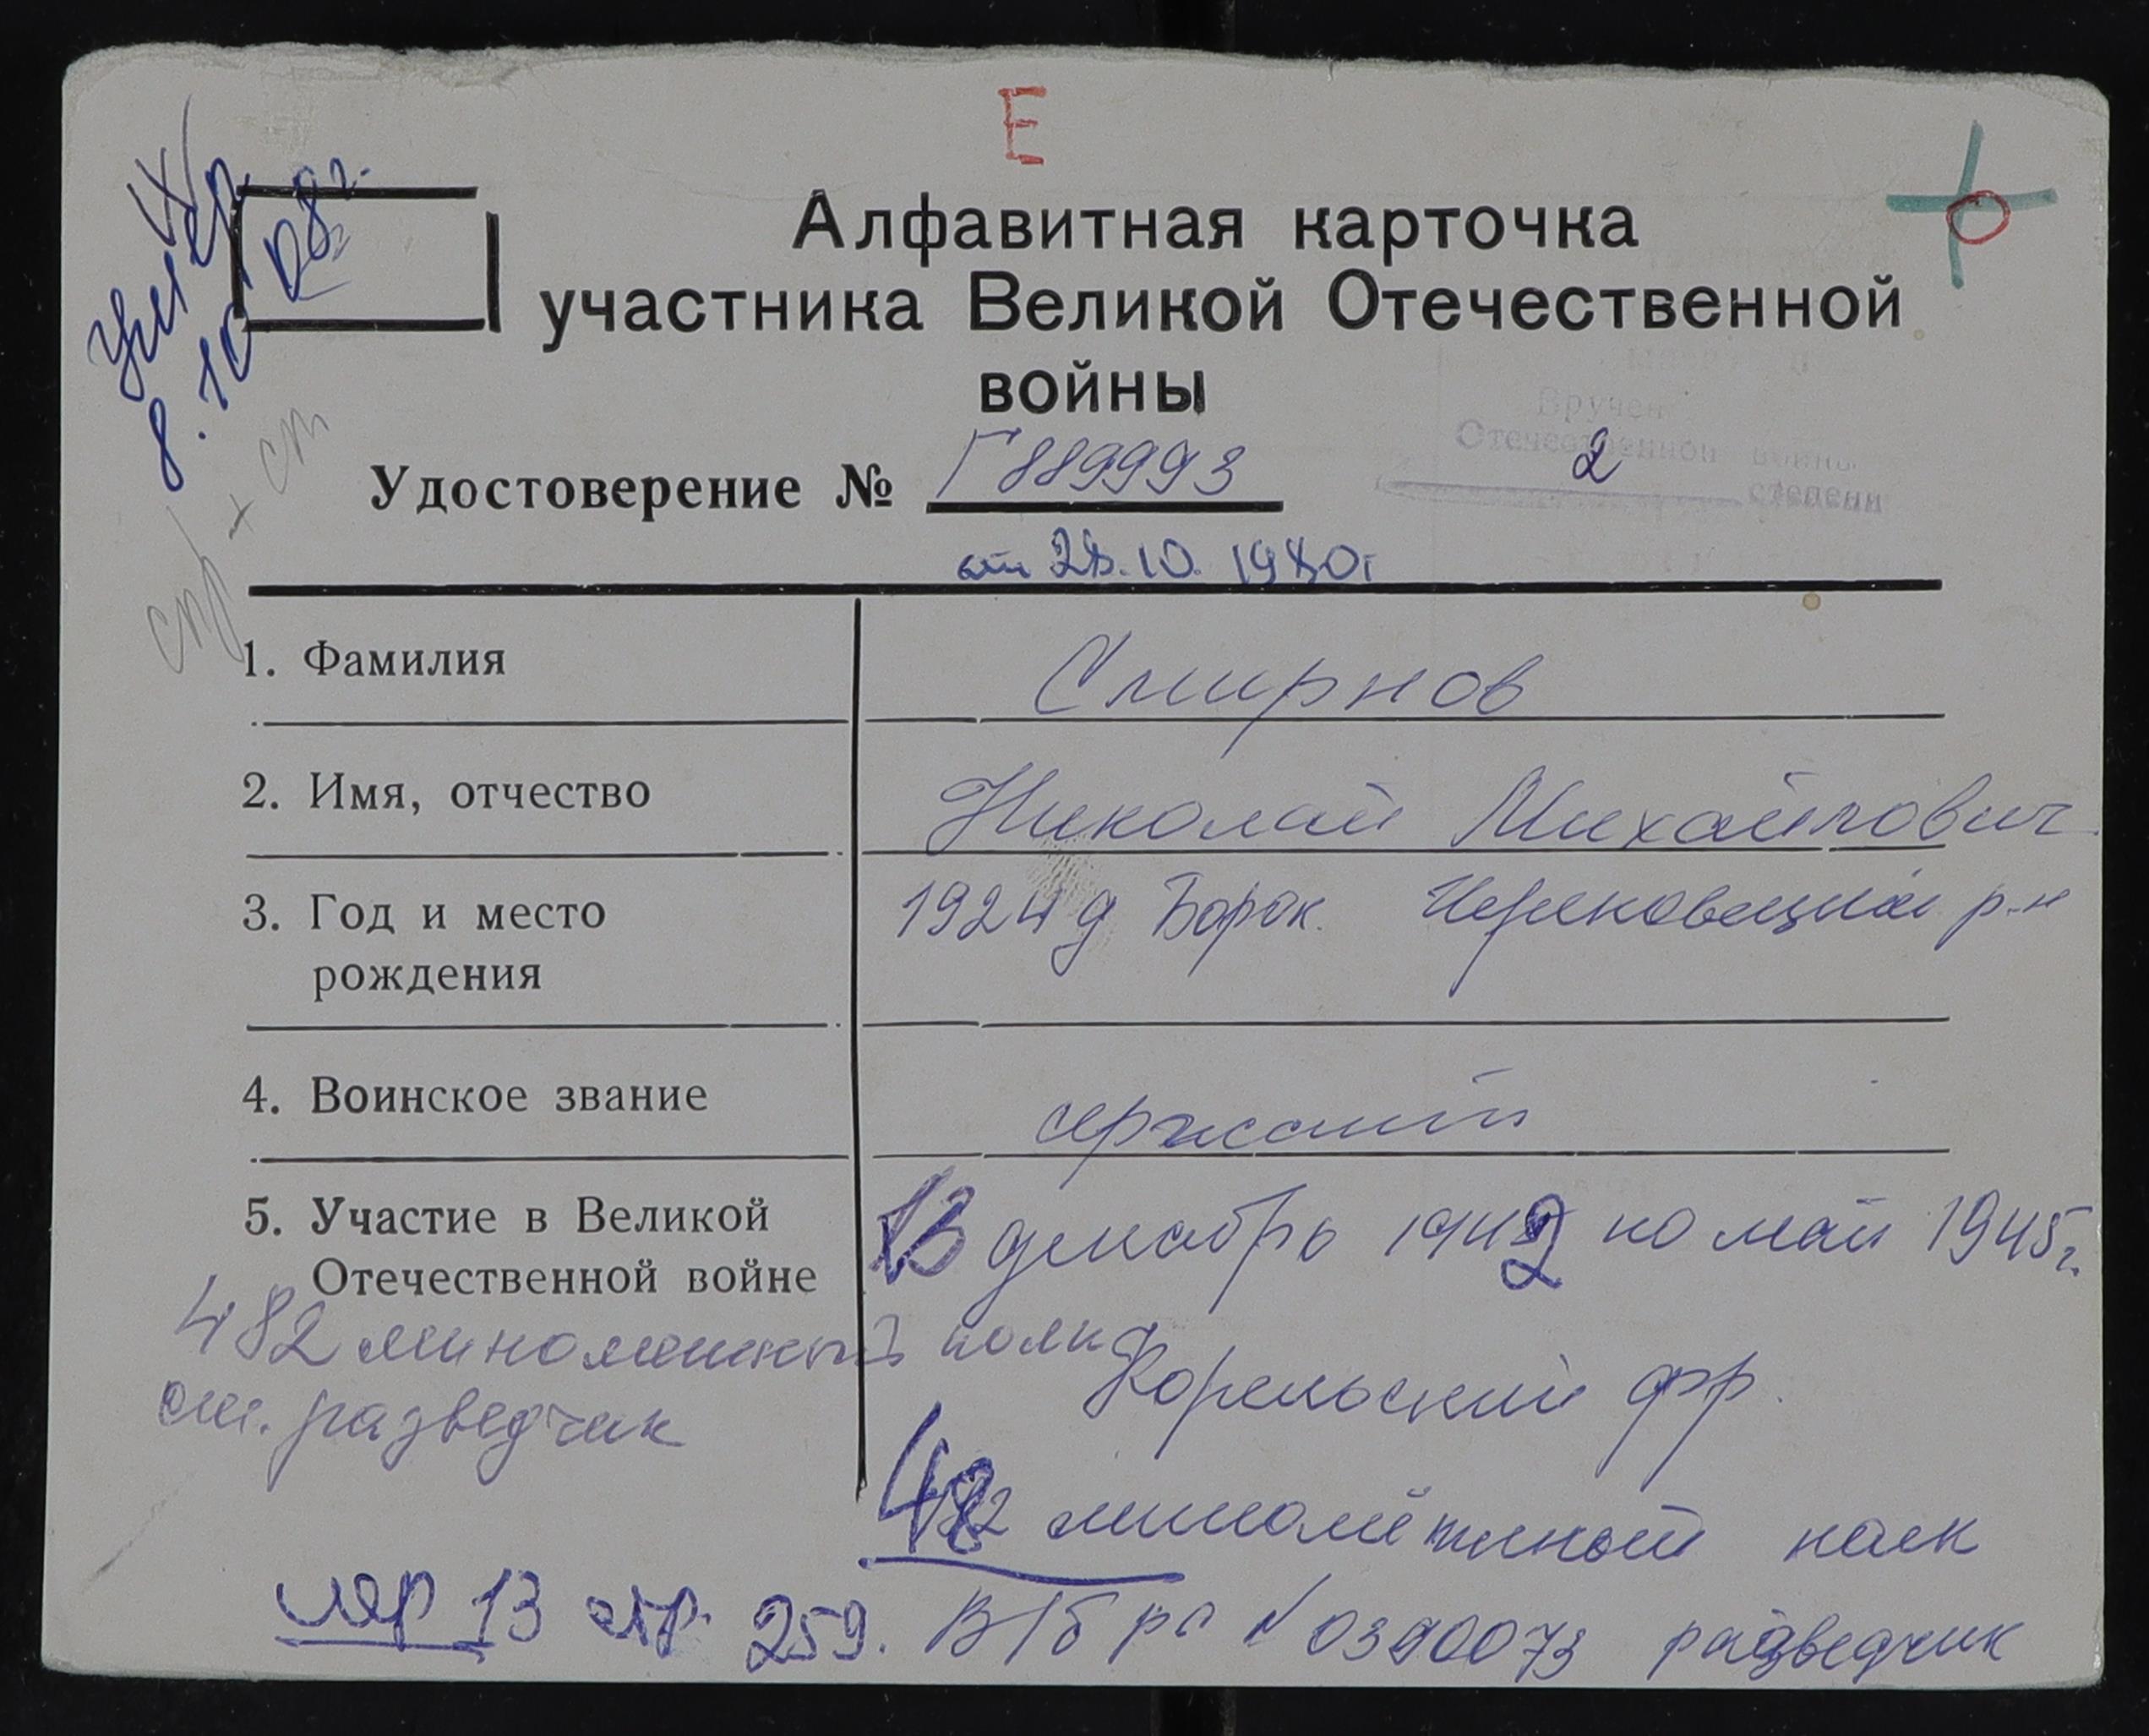 Е
Умер
8.10
Алфавитная карточка
участника Великой Отечественной
войны
Вручен
Отечественной войны
2 степени
Удостоверение № Г889993
от 28.10.1980г
1. Фамилия Смирнов
2. Имя, отчество Николай Михайлович
3. Год и место рождения 1924 д Борок. Череповецкий р-н
4. Воинское звание сержант
5. Участие в Великой Отечественной войне
декабрь 1942 по май 1945г.
482 минометный полк
ст. разведчик
Корельский фр.
482 миномётный полк
13 стр. 259. В/б рг № 0390073 разведчик